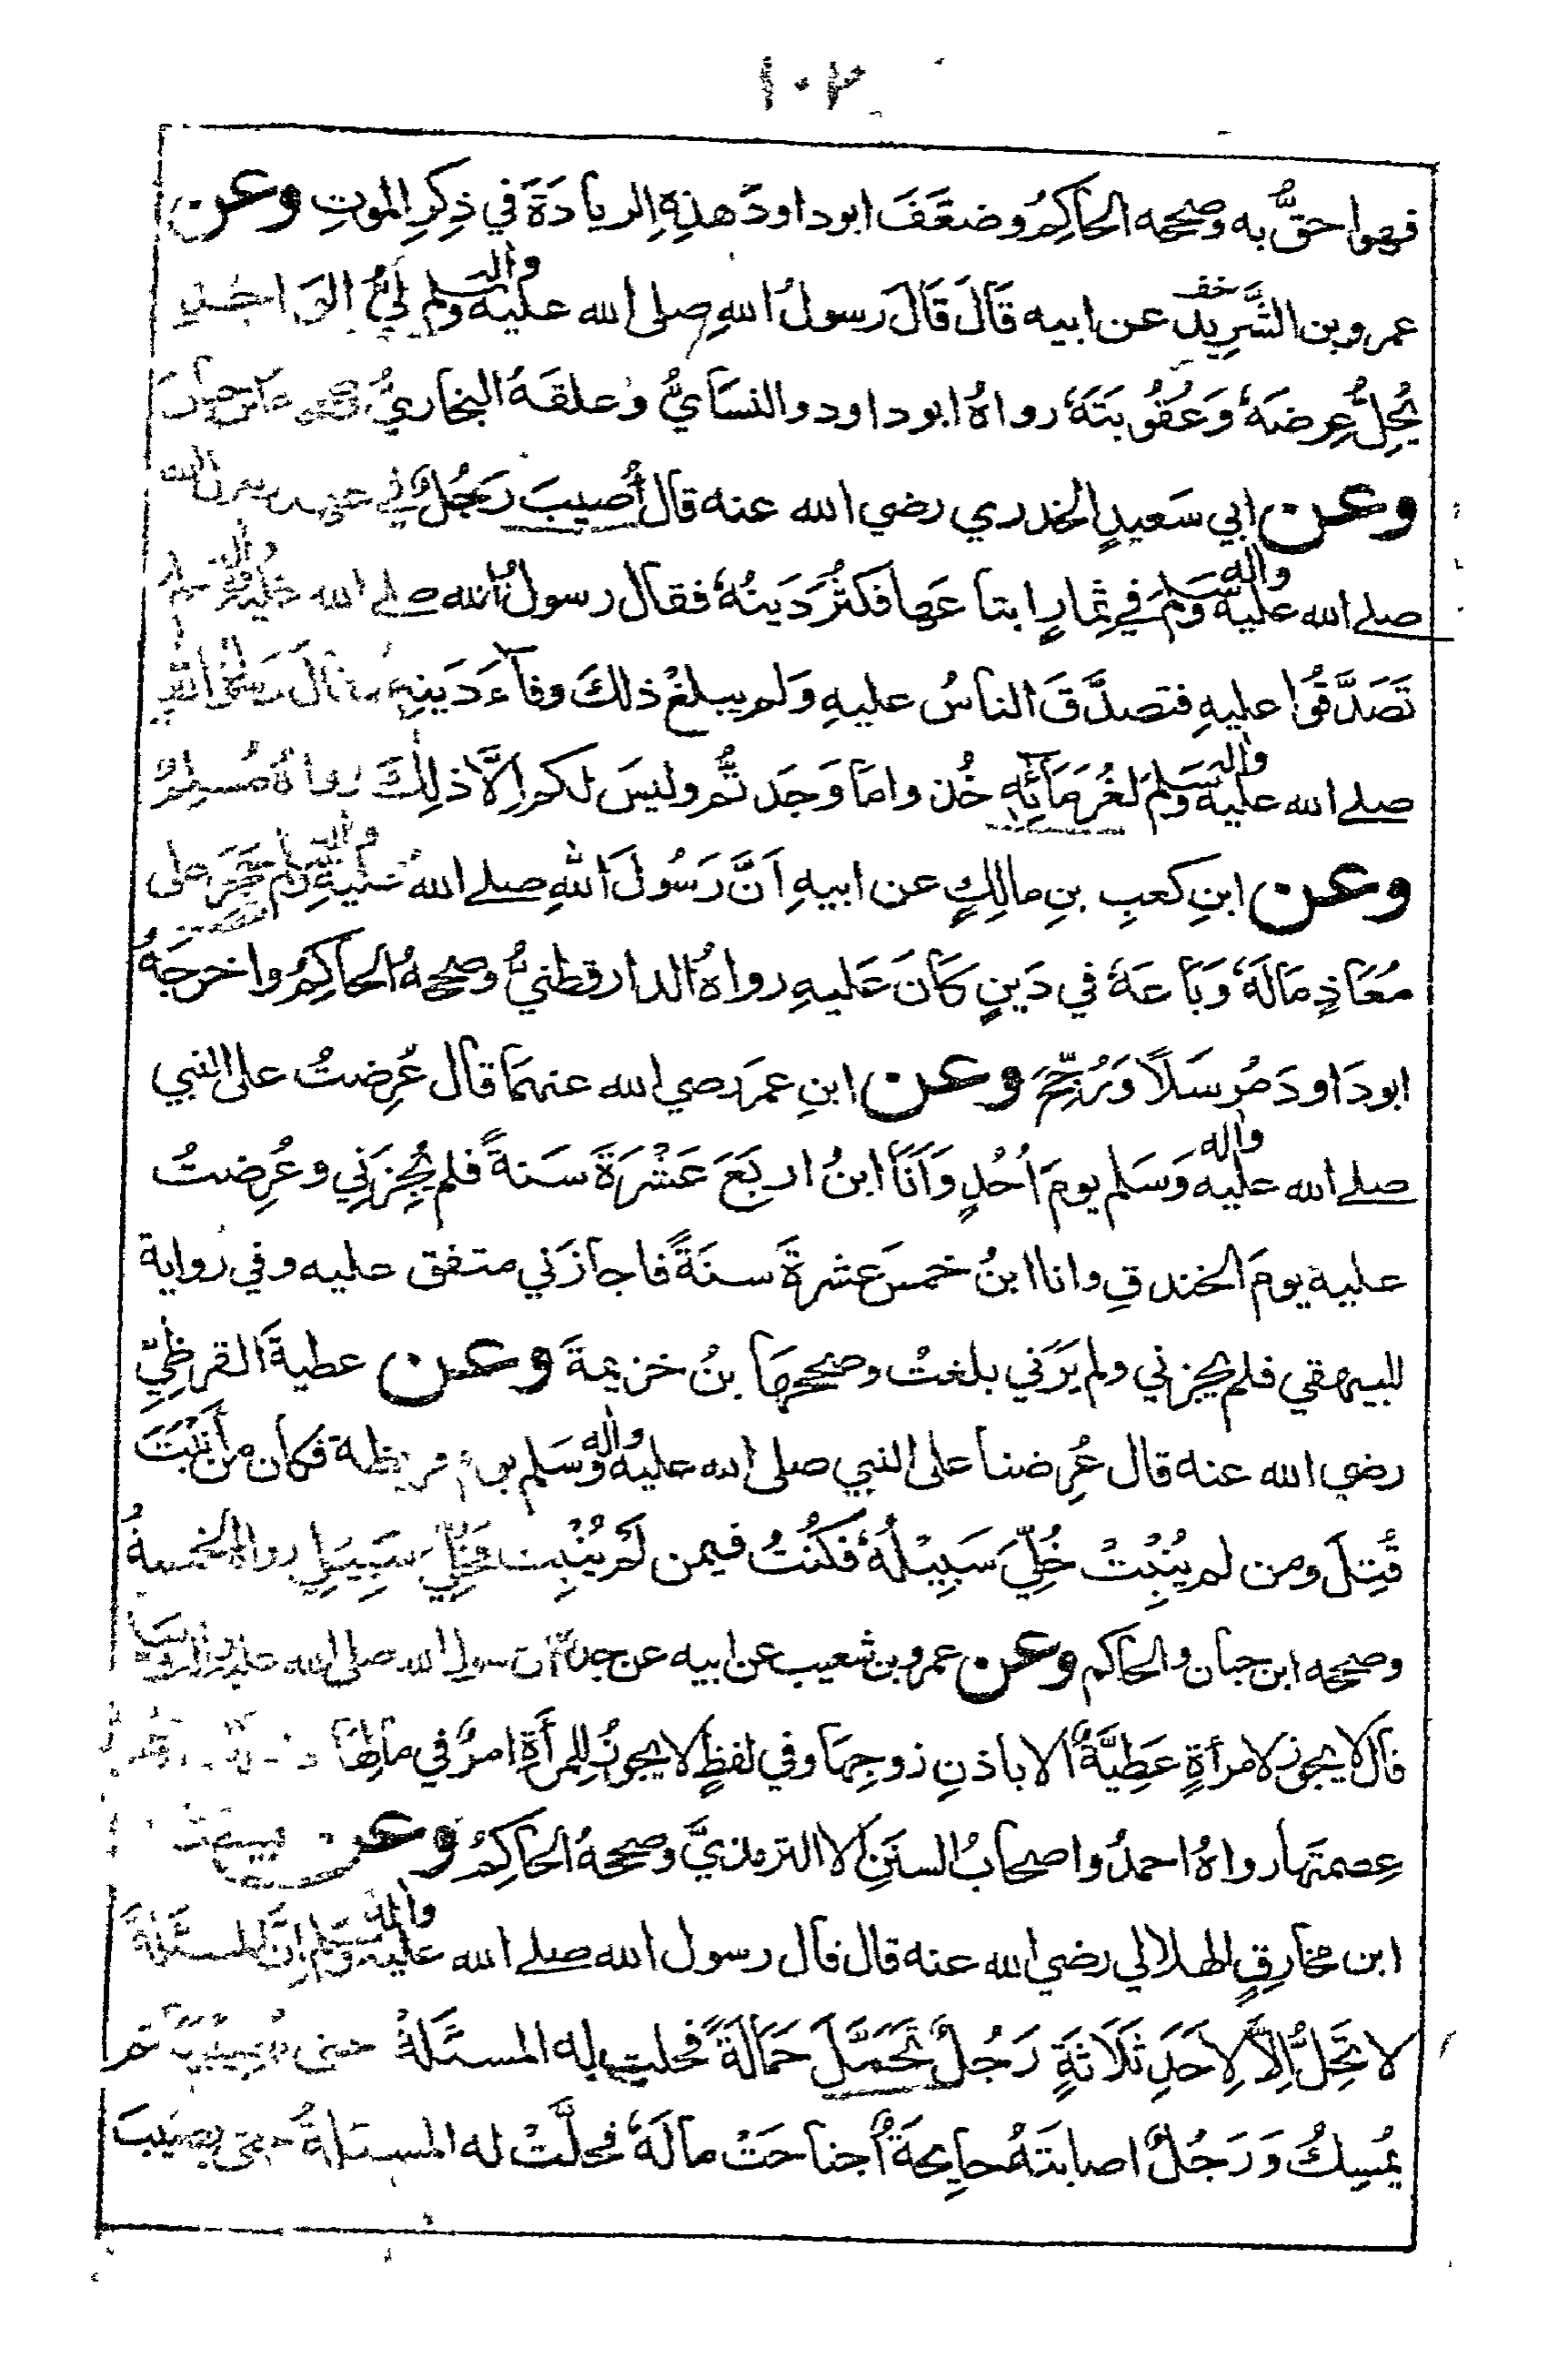 ١٠٢
فهو احقُّ به وصححه الحاكِمُ وضعَّفَ ابوداودَ هذِهِ الزيادَةَ في ذِكرِ الموتِ وعن
عمرو بن الشَّرِيد عن ابيه قَالَ قَالَ رَسولُ اللهِ صلى الله عليه واله وسلم لَيُّ الوَاجِدِ
يُحِلُّ عِرضَهُ وَعُقُوبَتَهُ رواهُ ابوداود والنسَائيُّ وعلقَهُ البخاريُّ
وعن ابي سَعيدٍ الخدري رضي الله عنه قال أُصيبَ رَجُلٌ في عهد رسول الله
صلے الله عليه واله وسَلم في ثِمارٍ ابتاعَها فكثُرَ دَينُهُ فقال رسولُ الله صلے الله عليه واله وسلم
تَصَدَّقُوا عليهِ فتصدَّقَ الناسُ عليهِ وَلم يبلغْ ذلكَ وفآءَ دَينِهِ فقالَ رَسولُ اللهِ
صلے الله عليه واله وسَلمَ لغُرَمَائِهِ خُذواما وَجَدتُّم وليسَ لكم اِلَّا ذلِكَ رواهُ مُسلِمٌ
وعن ابنِ كعبِ بنِ مالِكٍ عن ابيهِ اَنَّ رَسُولَ اللهِ صلے الله عَليهِ واله وسلم حَجَرَ على
مُعَاذٍ مَالَهُ وَبَاعَهُ في دَينٍ كَانَ عَليهِ رواهُ الدارقطنيُّ وصححهُ الحاكِمُ واخرجَهُ
ابودَاودَ مُرسَلاً وَرُجِّحَ وعن ابنِ عمرَ رضي الله عنهمَا قال عُرِضتُ على النبي
صلے الله عليه واله وَسَلم يومَ اُحُدٍ وَاَنَا ابنُ اربَعَ عَشْرَةَ سَنةً فلم يُجِزنِي وعُرِضتُ
عليه يومَ الخندقِ وانا ابنُ خمسَ عشرةَ سنَةً فاجازَني متفق عليه وفي رواية
للبيهقي فلم يجزني ولم يَرَني بلغتْ وصححها بنُ خزيمةَ وعن عطيةَ القرظِيِّ
رضي الله عنه قال عُرِضنا على النبي صلى الله عليه واله وسَلم يوم قريظة فكان من أَنبَتَ
قُتِلَ ومن لم يُنبِتْ خُلِّيَ سَبِيْلُهُ فَكُنْتُ فيمن لَم يُنبِت فخُلِّيَ سَبِيلِي رواه الخمسةُ
وصححه ابن حبان والحاكم وعن عمرو بن شعيب عن ابيه عن جده ان رسول الله صلى الله عليه واله وسلم
قال لا يجوز لامرأةٍ عَطِيَّةٌ الا باذنِ زوجِهَا وفي لفظٍ لا يجوزُ لِلمرأةِ امرٌ في مالِهَا
عِصمتَها رواهُ احمدُ واصحابُ السنَنِ اِلا الترمذيَّ وصححهُ الحاكِمُ وعن قبيصة
ابن مخارقٍ الهلالي رضي الله عنه قال قال رسول الله صلے الله عليه واله وسلم اِنَّ المسئَلةَ
لا تحِلُّ اِلَّا لِاَحَدِ ثَلَاثَةٍ رَجُلٌ تَحَمَّلَ حَمَالَةً فحلت له المسئَلةُ حتى يُصِيبَهَا ثم
يُمسِكُ وَرَجُلٌ اصابتَهُ جايِحَةٌ اجتاحَتْ مالَهُ فحلَّتْ له المسئلةُ حتى يصيبَ